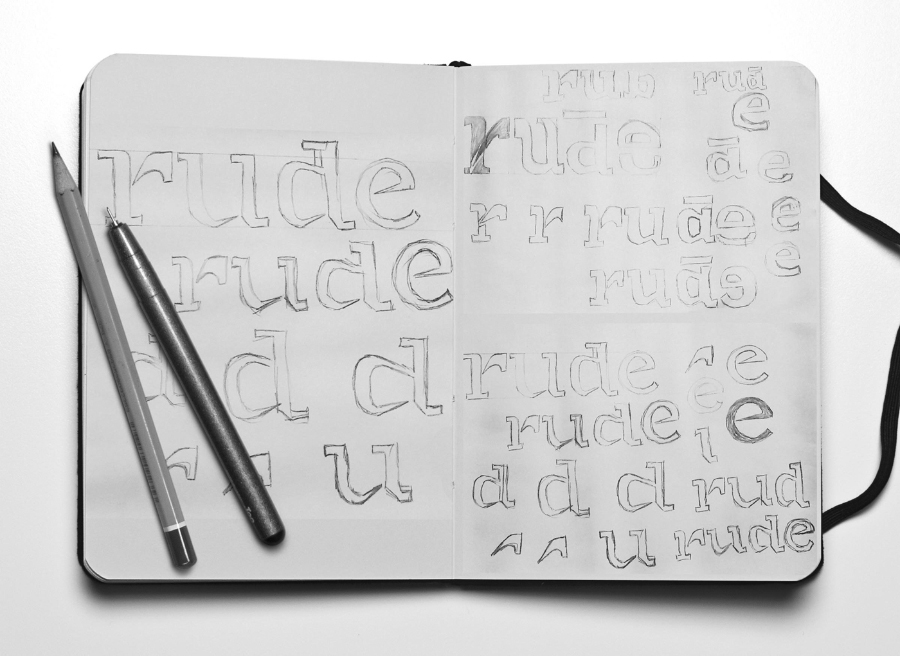 rude
rude
d d d
r r u
rud
rude
e
d e
r r rude e
rude e
rude r e
e
rude e
i
d d d rud
r r u rude